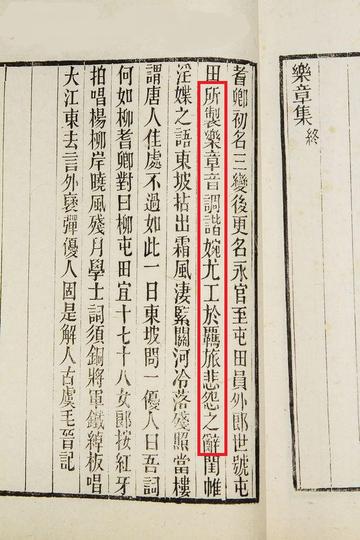 樂章集 終
耆卿初名三變後更名永官至屯田員外郎世號屯
田所製樂章音調諧婉尤工於羈旅悲怨之辭閨帷
淫媟之語東坡拈出霜風淒緊關河冷落殘照當樓
謂唐人佳處不過如此一日東坡問一優人曰吾詞
何如柳耆卿對曰柳屯田宜十七十八女郎按紅牙
拍唱楊柳岸曉風殘月學士詞須銅將軍鐵綽板唱
大江東去言外褒彈優人固是解人古虞毛晉記